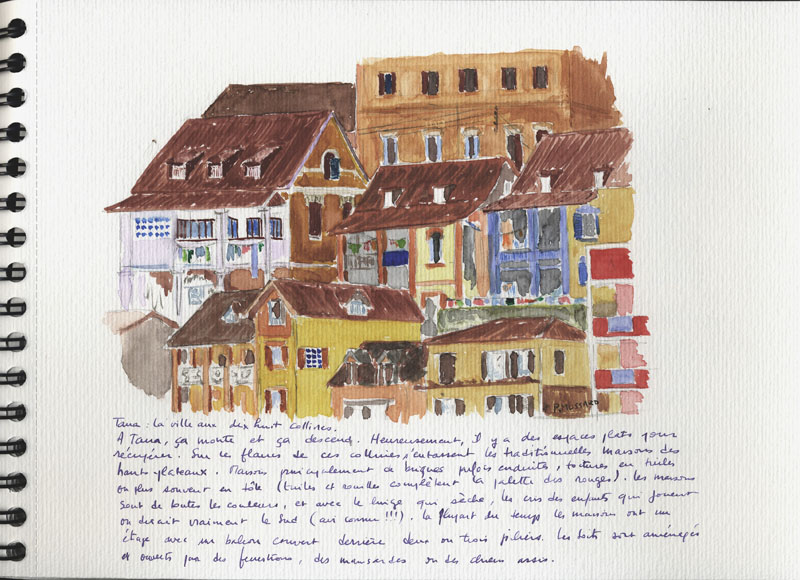 P. MUSSARD
Tana : la ville aux dix huit collines.
A Tana, ça monte et ça descend. Heureusement, il y a des espaces plats pour
récupérer. Sur les flancs de ces collines s'entassent les traditionnelles maisons des
hauts plateaux. Maisons principalement de briques parfois enduites, toitures en tuiles
ou plus souvent en tôle (tuiles et rouille complètent la palette des rouges). Les maisons
sont de toutes les couleurs, et avec le linge qui sèche, les cris des enfants qui jouent
on dirait vraiment le Sud (air connu !!!). La plupart du temps les maisons ont un
étage avec un balcon couvert derrière deux ou trois piliers. Les toits sont aménagés
et ouverts par des fenestrons, des mansardes ou des chiens assis.